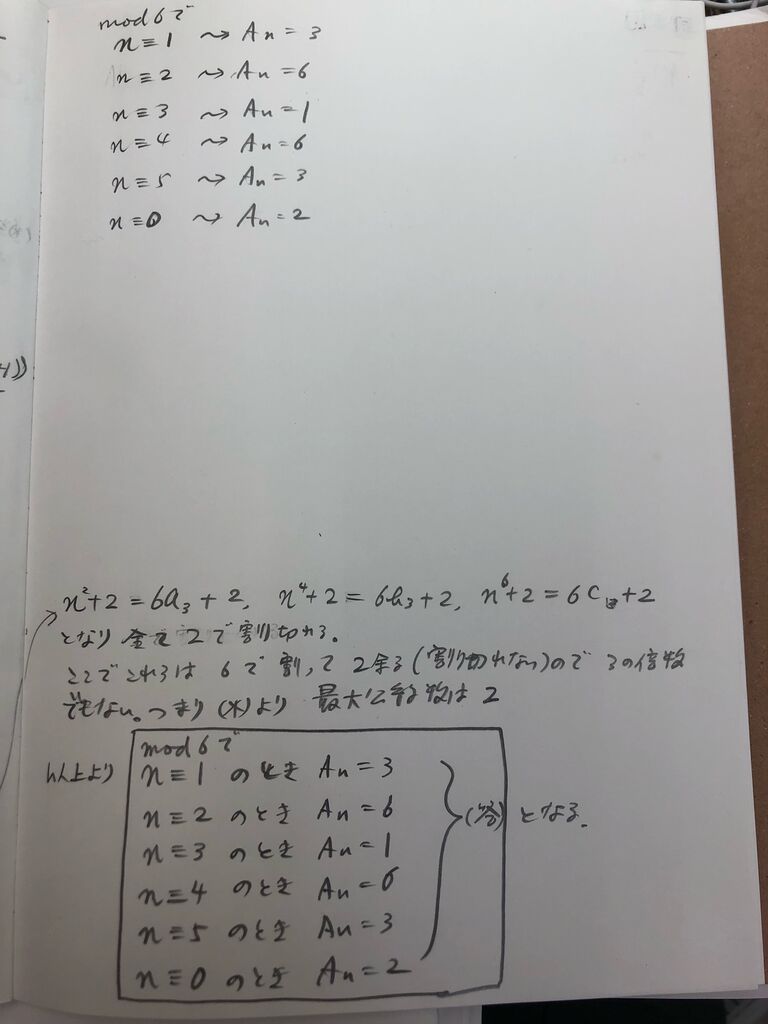 mod 6 で
n≡1 〜> An = 3
n≡2 〜> An = 6
n≡3 〜> An = 1
n≡4 〜> An = 6
n≡5 〜> An = 3
n≡0 〜> An = 2
n²+2 = 6a₃ + 2, n⁴+2 = 6b₃+2, n⁶+2 = 6C₃+2
となり 全て 2で割り切れる。
ここでこれらは 6で割って 2余る(割り切れない)ので 3の倍数
でもない。つまり(※)より 最大公約数は 2
以上より
mod 6 で
n≡1 のとき An = 3
n≡2 のとき An = 6
n≡3 のとき An = 1
n≡4 のとき An = 6
n≡5 のとき An = 3
n≡0 のとき An = 2
(答) となる.